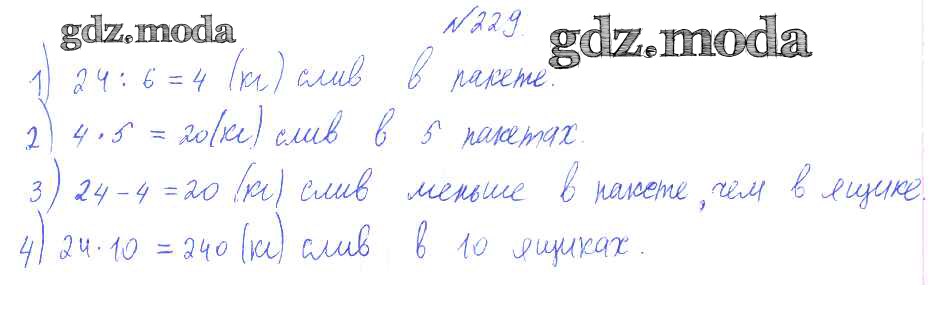 №229.
gdz.moda
gdz.moda
1) 24 : 6 = 4 (кг) слив в пакете.
2) 4 · 5 = 20 (кг) слив в 5 пакетах.
3) 24 - 4 = 20 (кг) слив меньше в пакете, чем в ящике.
4) 24 · 10 = 240 (кг) слив в 10 ящиках.